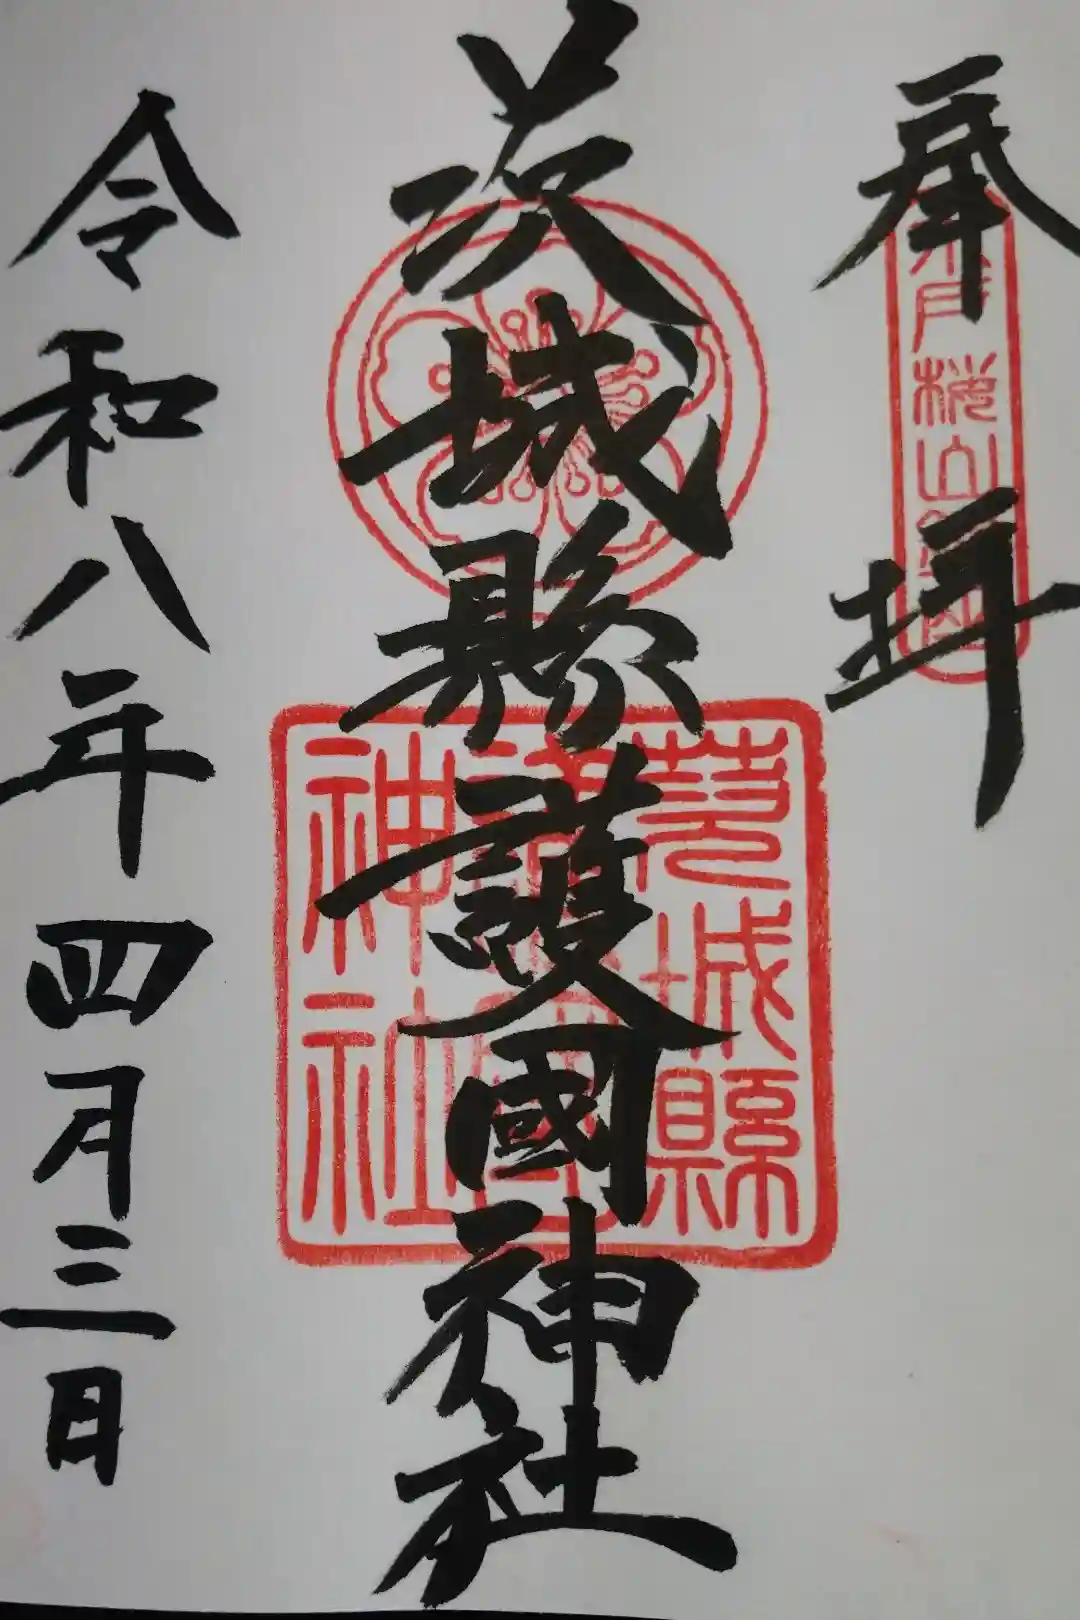 奉拝
水戸桜山鎮座
茨城縣護國神社
茨城縣
護國
神社
令和八年四月三日